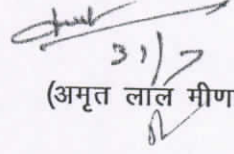 31/7
(अमृत लाल मीण